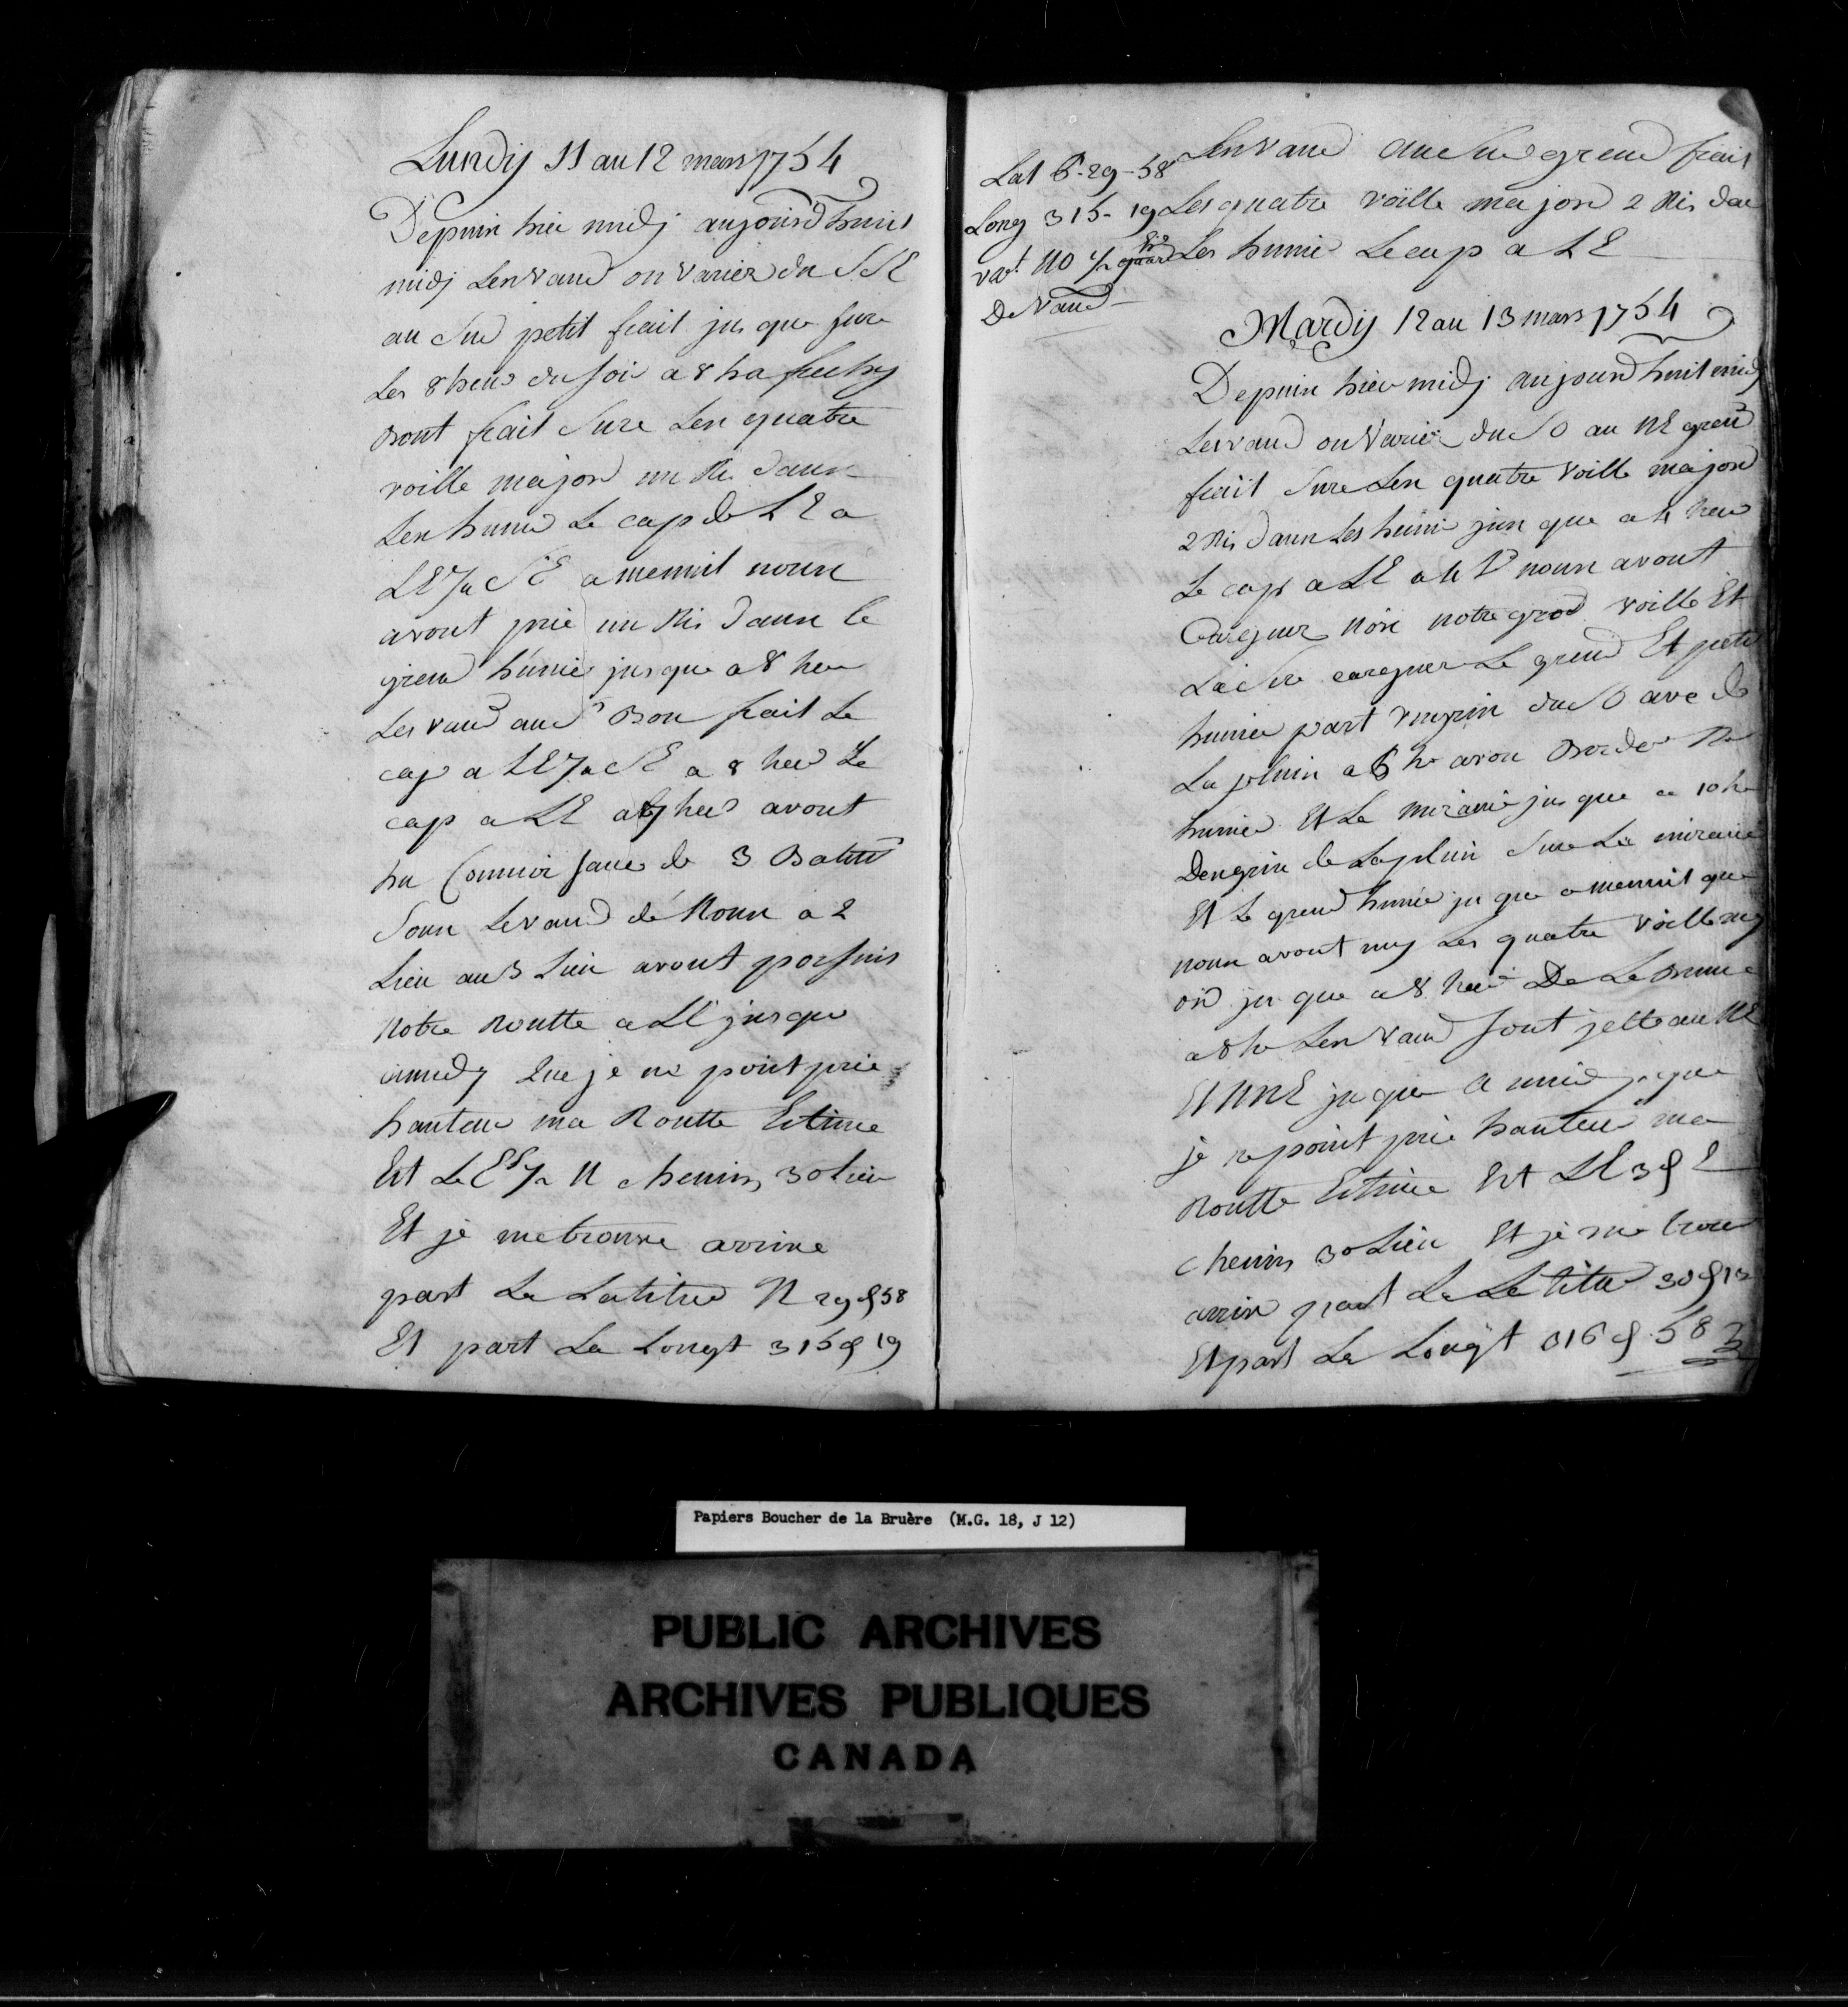 Lundy 11 au 12 mars 1754
Depuin hier midj aujourd huit
midj Len Vand on varier du SSE
au Sud petit frait jus que sure
Les 8 heur du soir a 8 h a
Bont frait Sure Len quatre
voille major un Ris daun
Len hunie Le cap de L E a
LE 1/4 SE a menuit noun
avont prie un Ris Daun le
grend hunie jusque a 8 heu
Les vand au S Bon frait Le
cap a LE 1/4 SE a 8 heu Le
cap a LE a heu avont
hu Connoissance de 3 Batim
Soun Le vand de Noun a 2
Lieu au 3 Lieu avont porsuis
Notre Routte a LE jusque
a midy Que je ne point prie
hauteur ma Routte Estime
Est Le E 1/4 N chemin 30 lieu
Et je me trouve arrive
part La Latitud N 29 d 58
Et part La Longt 315 d 19
Lat 29-58
Long 315-19
vat NO
De Vand
Len vand au Sud grend frait
Les quatre voille major 2 Ris dan
Les hunie Le cap a L E
Mardy 12 au 13 mars 1754
Depuin hier midj aujourd huit midj
Les vand on Varier du SO au NE grend
frait Sure Len quatre Voille major
2 Ris Daun Les hunie jus que a 4 heu
Le cap a LE a 4 noun avont
Carguer notre grod voille Et
carguer Le grend Et petit
hunier part du SO avec de
La pluin a 6 hr avon Border
hunier Et La mizaine jus que a 10 hr
De La pluin Sure La mizaine
Et Le grend hunie jus que a menuit que
noun avont my Les quatre voille maj
or jus que a 8 heu De La
a 8 hr Len Vand Sont jette au NE
Et NNE jus que a midj que
je ne point prie hauteur ma
Routte Estime Est LE 3 d E
chemin 30 Lieu Et je me trouve
arrive part La Latitud 30 d 13
Et part La Longt 316 d 58
Papiers Boucher de la Bruère (M.G. 18, J 12)
PUBLIC ARCHIVES
ARCHIVES PUBLIQUES
CANADA